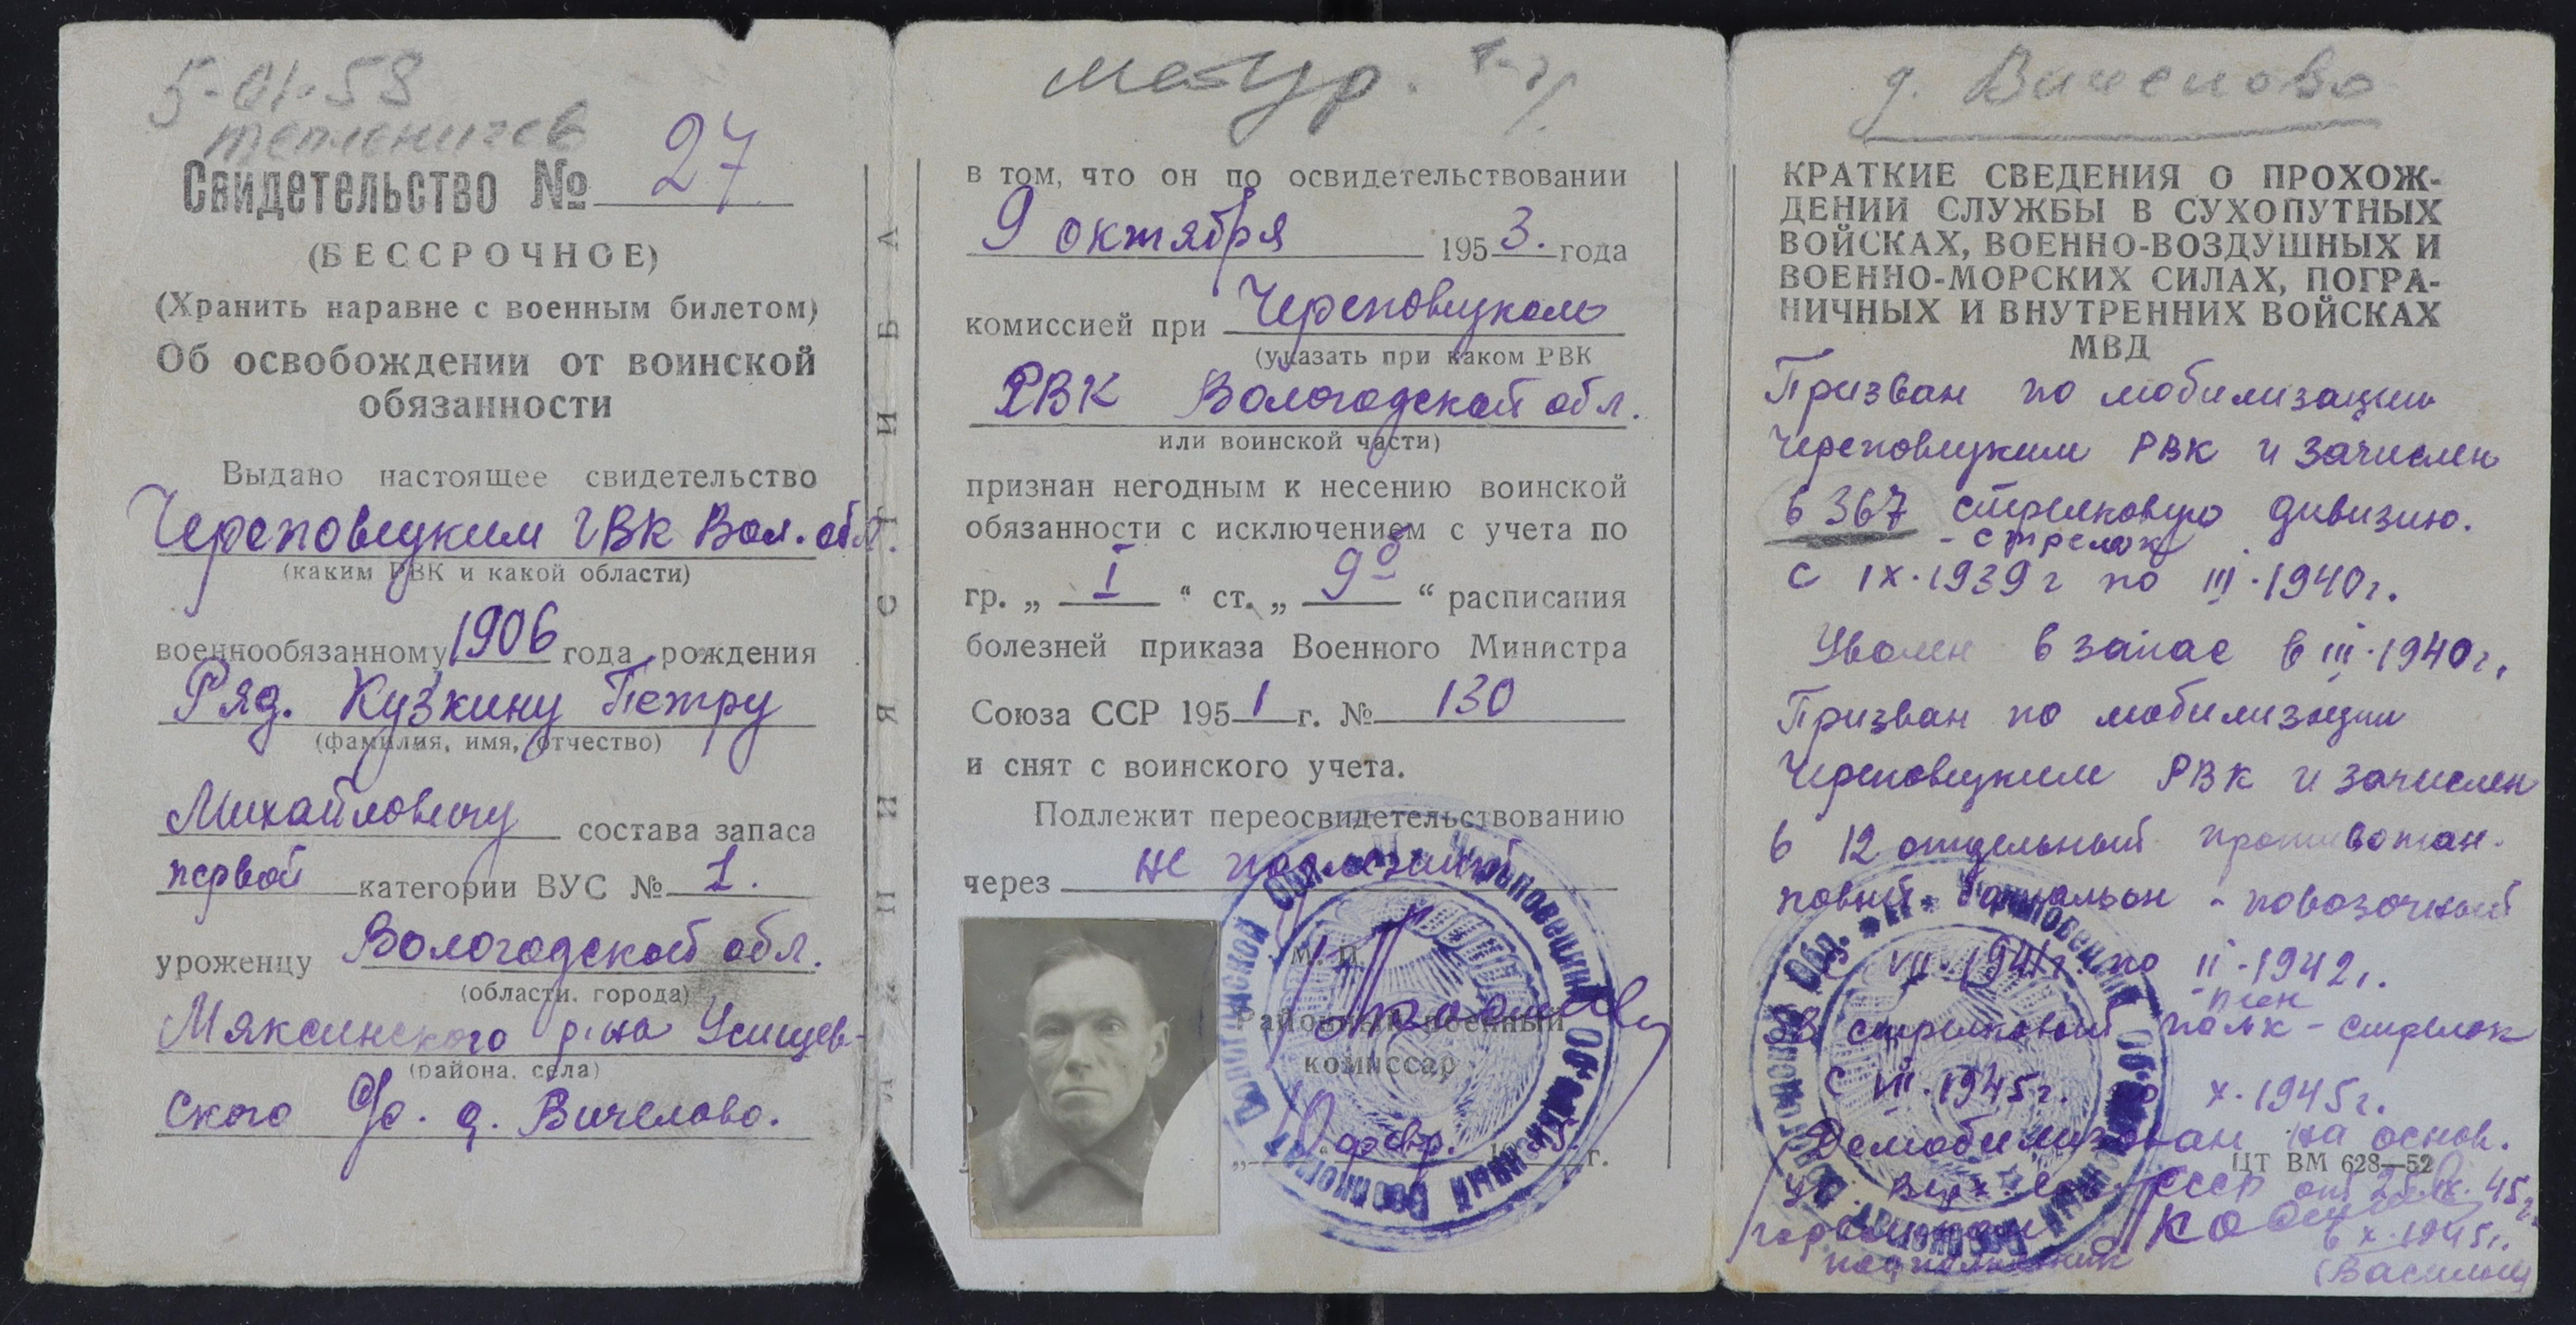 5-01-53
Свидетельство № 27
(БЕССРОЧНОЕ)
(Хранить наравне с военным билетом)
Об освобождении от воинской
обязанности
Выдано настоящее свидетельство
Череповецким ГВК Вол. обл.
(каким РВК и какой области)
военнообязанному 1906 года рождения
Ряд. Кузкину Петру
(фамилия, имя, отчество)
Михайловичу состава запаса
первой категории ВУС № 1.
уроженцу Вологодской обл.
(области, города)
Мяксинского р-на Усищев-
(района, села)
ского с/с. д. Вичелово.
в том, что он по освидетельствовании
9 октября 1953. года
комиссией при Череповецком
(указать при каком РВК
РВК Вологодской обл.
или воинской части)
признан негодным к несению воинской
обязанности с исключением с учета по
гр. „ I “ ст. „ 9б “ расписания
болезней приказа Военного Министра
Союза ССР 1951 г. № 130
и снят с воинского учета.
Подлежит переосвидетельствованию
через не подлежит
М. П.
Районный военный
комиссар
10 февр. г.
д. Вичелово
КРАТКИЕ СВЕДЕНИЯ О ПРОХОЖ-
ДЕНИИ СЛУЖБЫ В СУХОПУТНЫХ
ВОЙСКАХ, ВОЕННО-ВОЗДУШНЫХ И
ВОЕННО-МОРСКИХ СИЛАХ, ПОГРА-
НИЧНЫХ И ВНУТРЕННИХ ВОЙСКАХ
МВД
Призван по мобилизации
Череповецким РВК и зачислен
в 367 стрелковую дивизию.
- стрелок
с IX.1939 г по III.1940 г.
Уволен в запас в III.1940 г.
Призван по мобилизации
Череповецким РВК и зачислен
в 12 отдельный противотан-
ковый батальон - повозочный
с VII.1941 г. по II-1942 г.
- плен
стрелковый полк - стрелок
с VII.1945 г. X.1945 г.
Демобилизован на основ.
ЦТ ВМ 628—52
Ук. Верх. Сов. СССР от 45 г.
X.1945 г.
подполковник